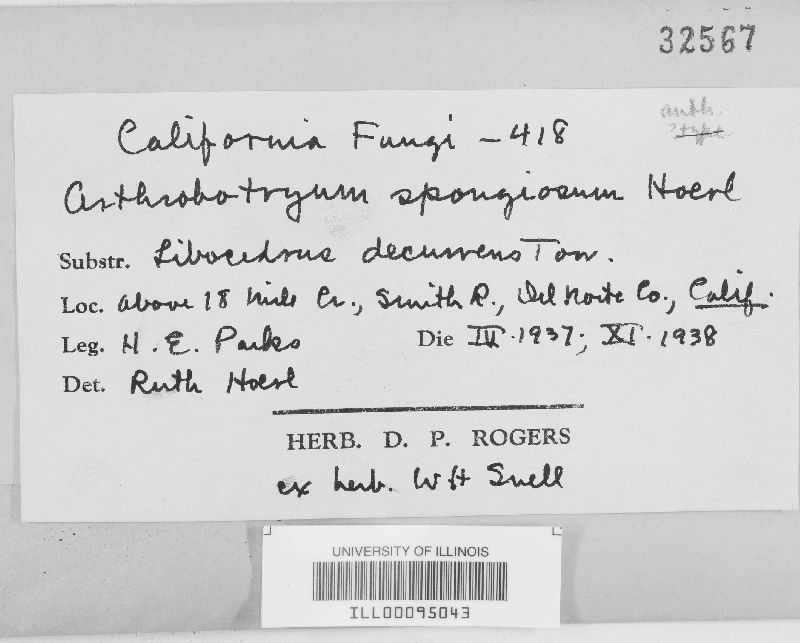 32567
auth.
?type
California Fungi - 418
Arthrobotryum spongiosum Hoerl
Substr. Libocedrus decurrens Torr.
Loc. above 18 Mile Cr., Smith R., Del Norte Co., Calif.
Leg. H. E. Parks Die IV. 1937; XI. 1938
Det. Ruth Hoerl
HERB. D. P. ROGERS
ex herb. W H Snell
UNIVERSITY OF ILLINOIS
ILL00095043